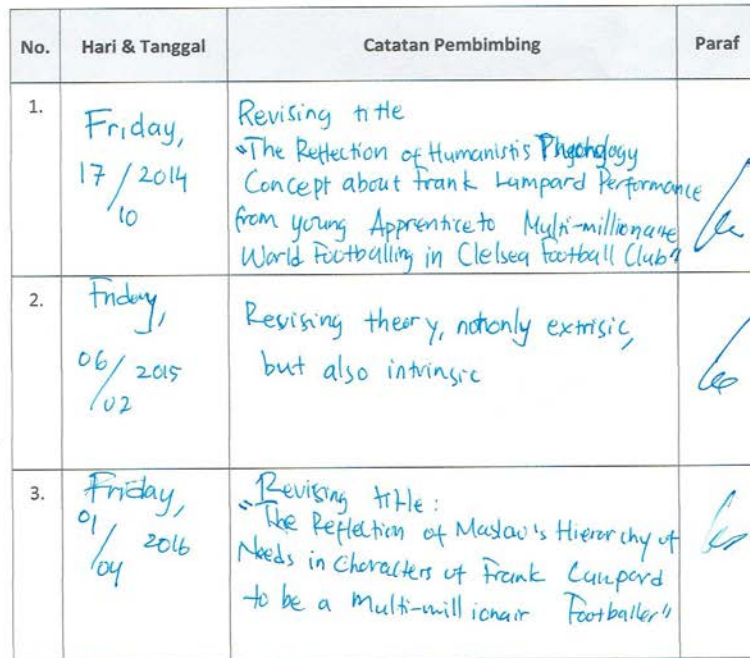 No. Hari & Tanggal Catatan Pembimbing Paraf
1. Friday,
17/10 2014
Revising title
"The Reflection of Humanistis Phychology
Concept about Frank Lampard Performance
from young Apprentice to Multi-millionaire
World Footballing in Clelsea Football Club"
2. Friday,
06/02 2015
Revising theory, not only extrisic,
but also intrinsic
3. Friday,
01/04 2016
Revising title:
"The Reflection of Maslow's Hierarchy of
Needs in Characters of Frank Lampard
to be a Multi-millionair Footballer"